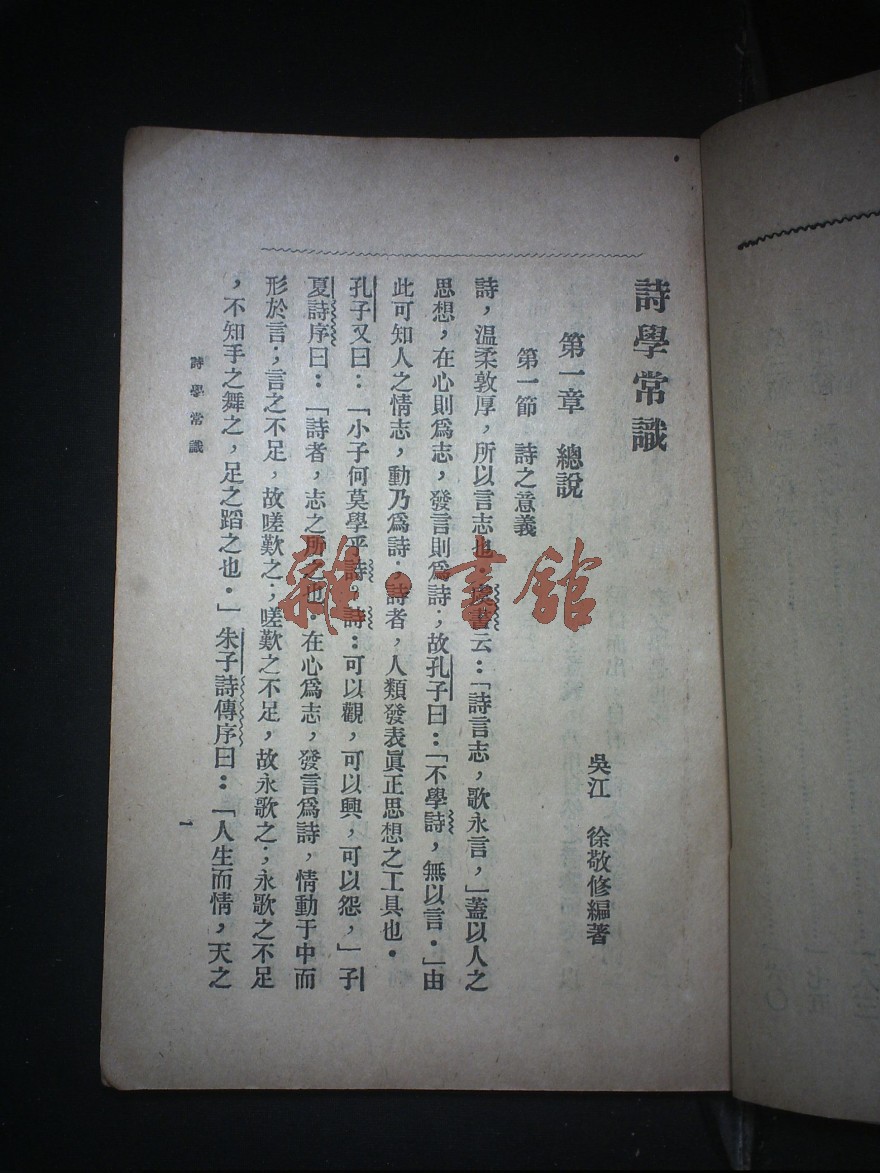 詩學常識
吳江　徐敬修編著
第一章　總說
第一節　詩之意義
詩，溫柔敦厚，所以言志也．虞書云：「詩言志，歌永言，」蓋以人之
思想，在心則爲志，發言則爲詩；故孔子曰：「不學詩，無以言．」由
此可知人之情志，動乃爲詩；詩者，人類發表眞正思想之工具也．
孔子又曰：「小子何莫學乎詩。詩：可以觀，可以興，可以怨，」子
夏詩序曰：「詩者，志之所之也．在心爲志，發言爲詩，情動于中而
形於言；言之不足，故嗟歎之；嗟歎之不足，故永歌之；永歌之不足
，不知手之舞之，足之蹈之也．」朱子詩傳序曰：「人生而情，天之
詩學常識
一
雜·書館